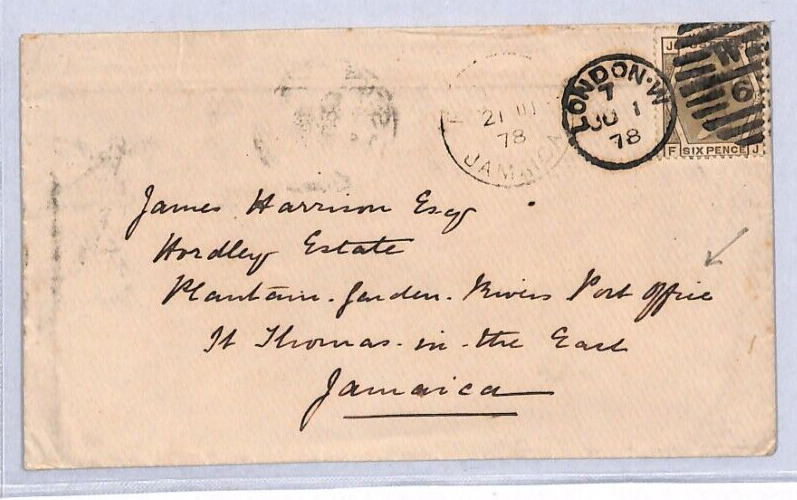 LONDON·W
7
JU 1
78
W
6
J F
F SIX PENCE J
21 JU
78
JAMAICA
James Harrison Esqr
Hordley Estate
Plantain-Garden-Rivers Post Office
St Thomas-in-the East
Jamaica